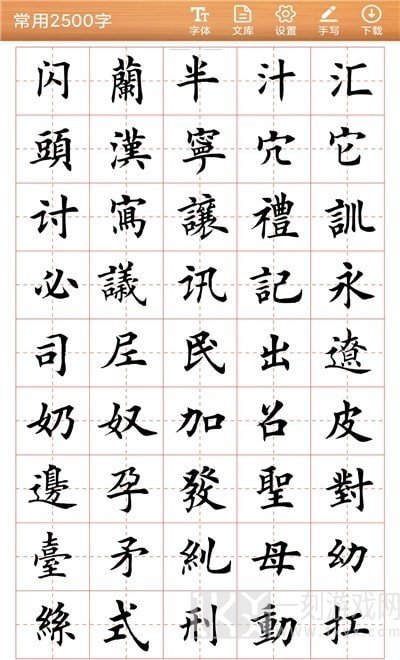 常用2500字
字体 文库 设置 手写 下载
闪蘭半汁汇
頭漢寧穴它
讨寫讓禮訓
必議讯記永
司尼民出遼
奶奴加召皮
邊孕發聖對
臺矛糺母幼
絲式刑動扛
一刻游戏网